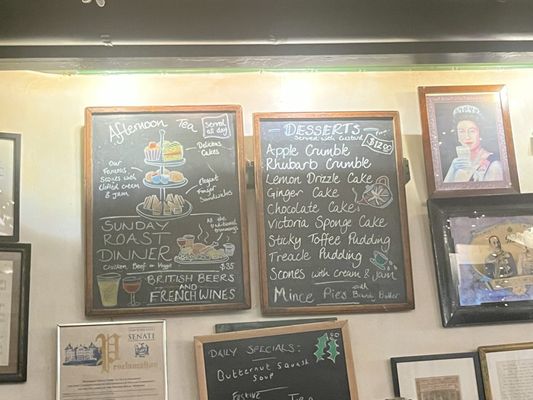 Afternoon Tea
Served all Day!
Delicious
Cakes
Our
Famous
Scones with
clotted cream
and Jam
elegant
finger
Sandwiches
SUNDAY
ROAST
DINNER
Chicken Beef or Veggie
all the
traditional
$35
BRITISH BEERS
AND
FRENCH WINES
DESSERTS
Served with custard
from
$12.00
Apple Crumble
Rhubarb Crumble
Lemon Drizzle Cake
Ginger Cake
Chocolate Cake
Victoria Sponge Cake
Sticky Toffee Pudding
Treacle Pudding
Scones with cream & Jam
Mince Pies with Brandy Butter
SENATE
Proclamation
DAILY SPECIALS:
Butternut Squash
Soup
Festive